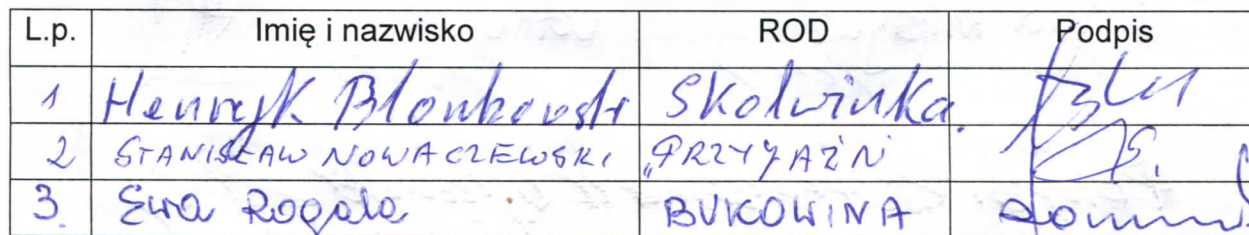 L.p. Imię i nazwisko ROD Podpis
1 Henryk Blonkowski Skolwinka.
2 STANISŁAW NOWACZEWSKI "PRZYJAŹŃ
3. Ewa Rogala BUKOWINA